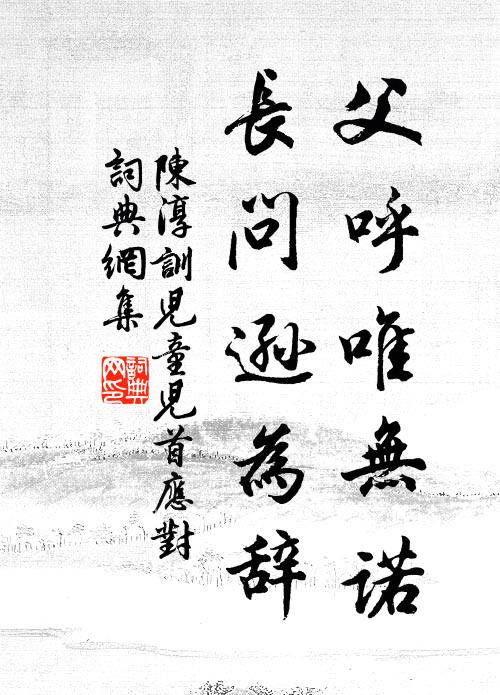 父呼唯無諾
長問遜為辞
陳淳訓兒童兒首應對
詞典網集
詞典网印